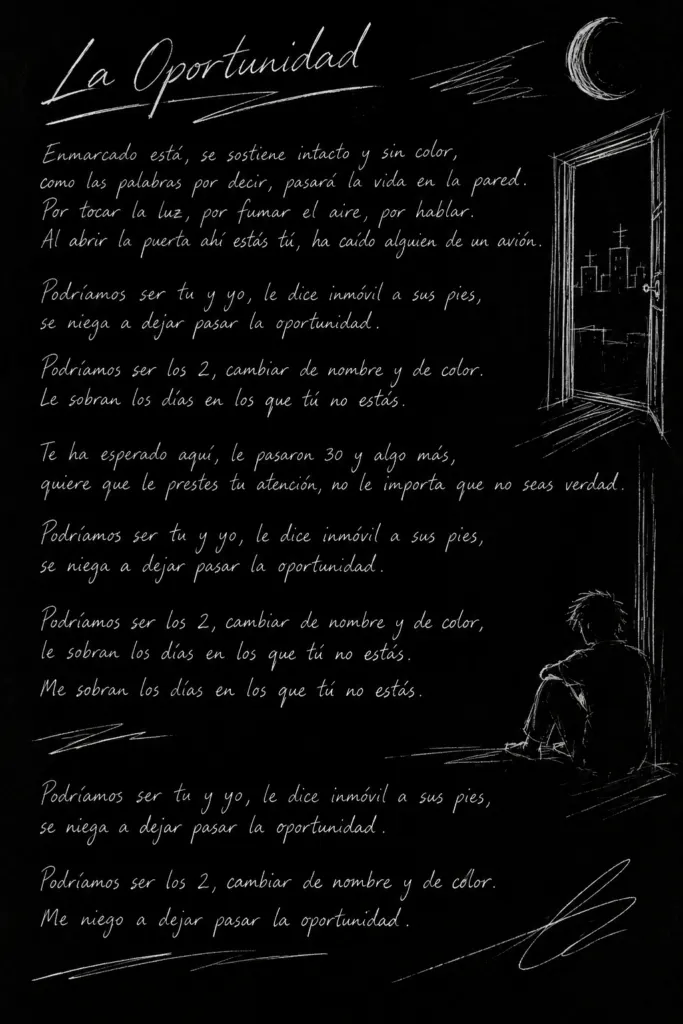 La Oportunidad
Enmarcado está, se sostiene intacto y sin color,
como las palabras por decir, pasará la vida en la pared.
Por tocar la luz, por fumar el aire, por hablar.
Al abrir la puerta ahí estás tú, ha caído alguien de un avión.
Podríamos ser tu y yo, le dice inmóvil a sus pies,
se niega a dejar pasar la oportunidad.
Podríamos ser los 2, cambiar de nombre y de color.
Le sobran los días en los que tú no estás.
Te ha esperado aquí, le pasaron 30 y algo más,
quiere que le prestes tu atención, no le importa que no seas verdad.
Podríamos ser tu y yo, le dice inmóvil a sus pies,
se niega a dejar pasar la oportunidad.
Podríamos ser los 2, cambiar de nombre y de color,
le sobran los días en los que tú no estás.
Me sobran los días en los que tú no estás.
Podríamos ser tu y yo, le dice inmóvil a sus pies,
se niega a dejar pasar la oportunidad.
Podríamos ser los 2, cambiar de nombre y de color.
Me niego a dejar pasar la oportunidad.